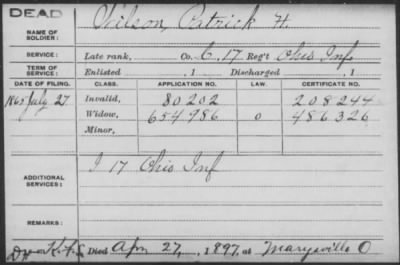 DEAD
NAME OF SOLDIER: Wilson, Patrick H.
SERVICE: Late rank, Co. C, 17 Reg't Ohio Inf
TERM OF SERVICE: Enlisted , 1 Discharged , 1
DATE OF FILING. CLASS. APPLICATION NO. LAW. CERTIFICATE NO.
1865 July 27. Invalid, 80202 208244
Widow, 654986 O 486326
Minor,
ADDITIONAL SERVICES: I 17 Ohio Inf
REMARKS:
Died Apr 27, 1897, at Marysville O